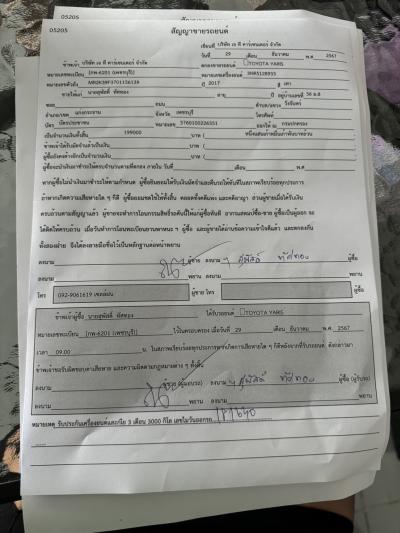 05205
05205
สัญญาขายรถยนต์
เขียนที่ บริษัท เจ ที คาร์เซนเตอร์ จำกัด
วันที่ 29 เดือน ธันวาคม พ.ศ. 2567
ข้าพเจ้า บริษัท เจ ที คาร์เซนเตอร์ จำกัด ตกลงขายรถยนต์ TOYOTA YARIS
หมายเลขทะเบียน กพ-6201 (เพชรบุรี) หมายเลขเครื่องยนต์
หมายเลขตัวถัง ปี 2017 สี เทา
ขายให้แก่ นายสุพัลดิ์ ทัดทอง อายุ ปี อยู่บ้านเลขที่ 36 ม.8
ซอย ถนน ตำบล/แขวง วังจันทร์
อำเภอ/เขต แก่งกระจาน จังหวัด เพชรบุรี โทรศัพท์
บัตร บัตรประชาชน หมายเลข 3760100226351 ออกให้ ณ กรมปกครอง
เป็นจำนวนเงินทั้งสิ้น 199000 บาท ( หนึ่งแสนเก้าหมื่นเก้าพันบาทถ้วน
ข้าพเจ้าได้รับมัดจำแล้วเป็นเงิน บาท (
ผู้ซื้อยังคงค้างอีกเป็นจำนวนเงิน บาท (
ผู้ซื้อจะนำเงินมาชำระให้ครบจำนวนตามที่ตกลง ภายใน วันที่ เดือน พ.ศ.
หากผู้ซื้อไม่นำเงินมาชำระตามกำหนด ผู้ซื้อยินยอมให้ริบเงินมัดจำและคืนรถให้ทันทีในสภาพเรียบร้อยทุกประการ
ถ้าหากเกิดความเสียหายใด ๆ ก็ดี ผู้ซื้อยอมชดใช้ให้ทั้งสิ้น ตลอดทั้งคดีแพ่ง และคดีอาญา ถ้าผู้ขายเมื่อได้รับเงิน
ครบถ้วนตามสัญญาแล้ว ผู้ขายจะทำการโอนกรรมสิทธิ์รถคันนี้ให้แก่ผู้ซื้อทันที
ทั้งสองฝ่าย จึงได้ลงลายมือชื่อไว้เป็นหลักฐานต่อหน้าพยาน
ลงนาม ผู้ขาย ลงนาม สุพัลดิ์ ทัดทอง ผู้ซื้อ
ลงนาม พยาน ลงนาม พยาน
โทร 092-9061619 ผู้ขาย โทร ผู้ซื้อ
ข้าพเจ้าผู้ซื้อ นายสุพัลดิ์ ทัดทอง ได้รับรถยนต์ TOYOTA YARIS
หมายเลขทะเบียน กพ-6201 (เพชรบุรี) ไว้ในครอบครอง เมื่อวันที่ 29 เดือน ธันวาคม พ.ศ. 2567
เวลา 09.00 น.
ข้าพเจ้าจะรับผิดชอบความเสียหาย และความผิดตามกฎหมายต่าง ๆ ทั้งสิ้น
ลงนาม ผู้ขาย (ผู้มอบรถ) ลงนาม สุพัลดิ์ ทัดทอง ผู้ซื้อ (ผู้รับรถ)
ลงนาม พยาน ลงนาม พยาน
หมายเหตุ รับประกันเครื่องยนต์และเกียร์ 3 เดือน 3000 กิโล เลขไมล์วันออกรถ